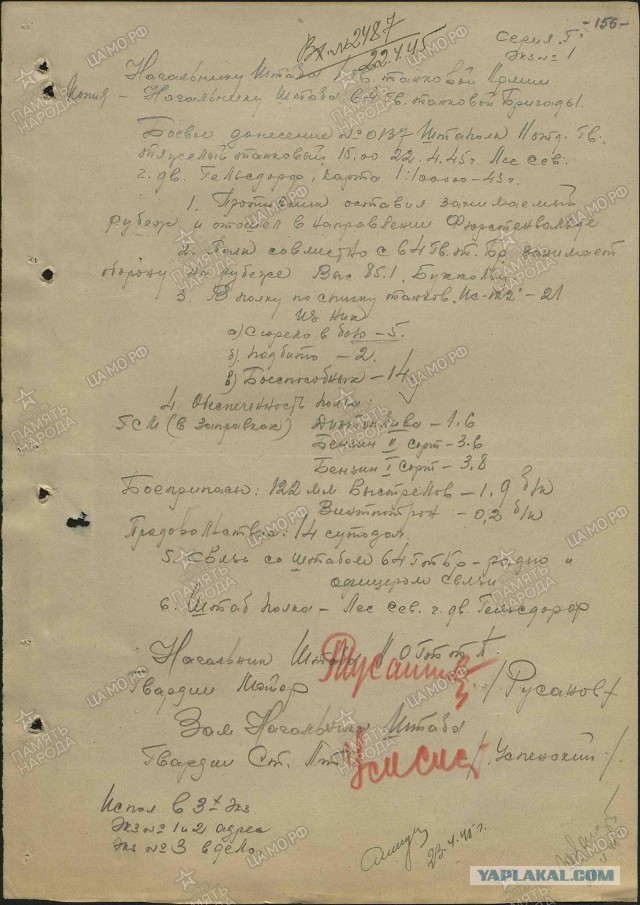 -156-
Вх №2487
22.4.45
Серия "Г"
Экз № 1
Начальнику Штаба 1 Гв. танковой Армии
Копия – Начальнику Штаба 64 Гв. танковой Бригады.
Боевое донесение № 0137 Штаполк 11 отд. Гв.
тяжелый танковый 15.00 22.4.45г Лес сев.
г. дв. Гельсдорф, карта 1:100000-43г.
1. Противник оставил занимаемый
рубеж и отошел в направлении Фюрстенвальде
2. Полк совместно с 64 Гв. т. Бр. занимает
оборону на рубеже Выс 85.1,
3. В полку по списку танков "Ис-м2" – 21
Из них
а) Сгорело в бою – 5.
б) подбито – 2.
в) Боеспособных – 14
4. Обеспеченность полка:
ГСМ (в заправках) Дизтоплива – 1.6
Бензин II сорт – 3.6
Бензин I сорт – 3.8
Боеприпасы: 122 мм выстрелов – 1,9 б/к
Винтпатрон – 0,2 б/к
Продовольствия: 14 сутодач.
5. Связь со штабом 64 Гтбр – радио и
офицером связи
6. Штаб полка – Лес сев. г. дв. Гельсдорф
Начальник Штаба 11 ОГттП
Гвардии Майор /Русанов/
Зам Начальника Штаба
Гвардии Ст. Л-т /Успенский/.
Испол в 3х экз
Экз № 1 и 2 адреса
Экз № 3 в дело.
23.4.45г.
ПАМЯТЬ НАРОДА
ЦАМО.РФ
YAPLAKAL.COM